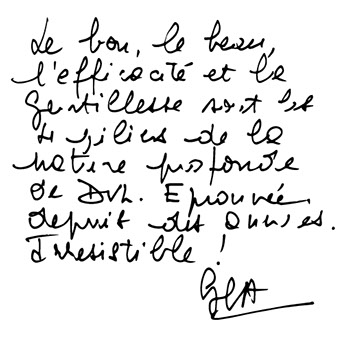 Le bon, le beau,
l'efficacité et la
gentillesse sont les
4 piliers de la
nature profonde
de DVL. Eprouvée
depuis des années.
Irrésistible !